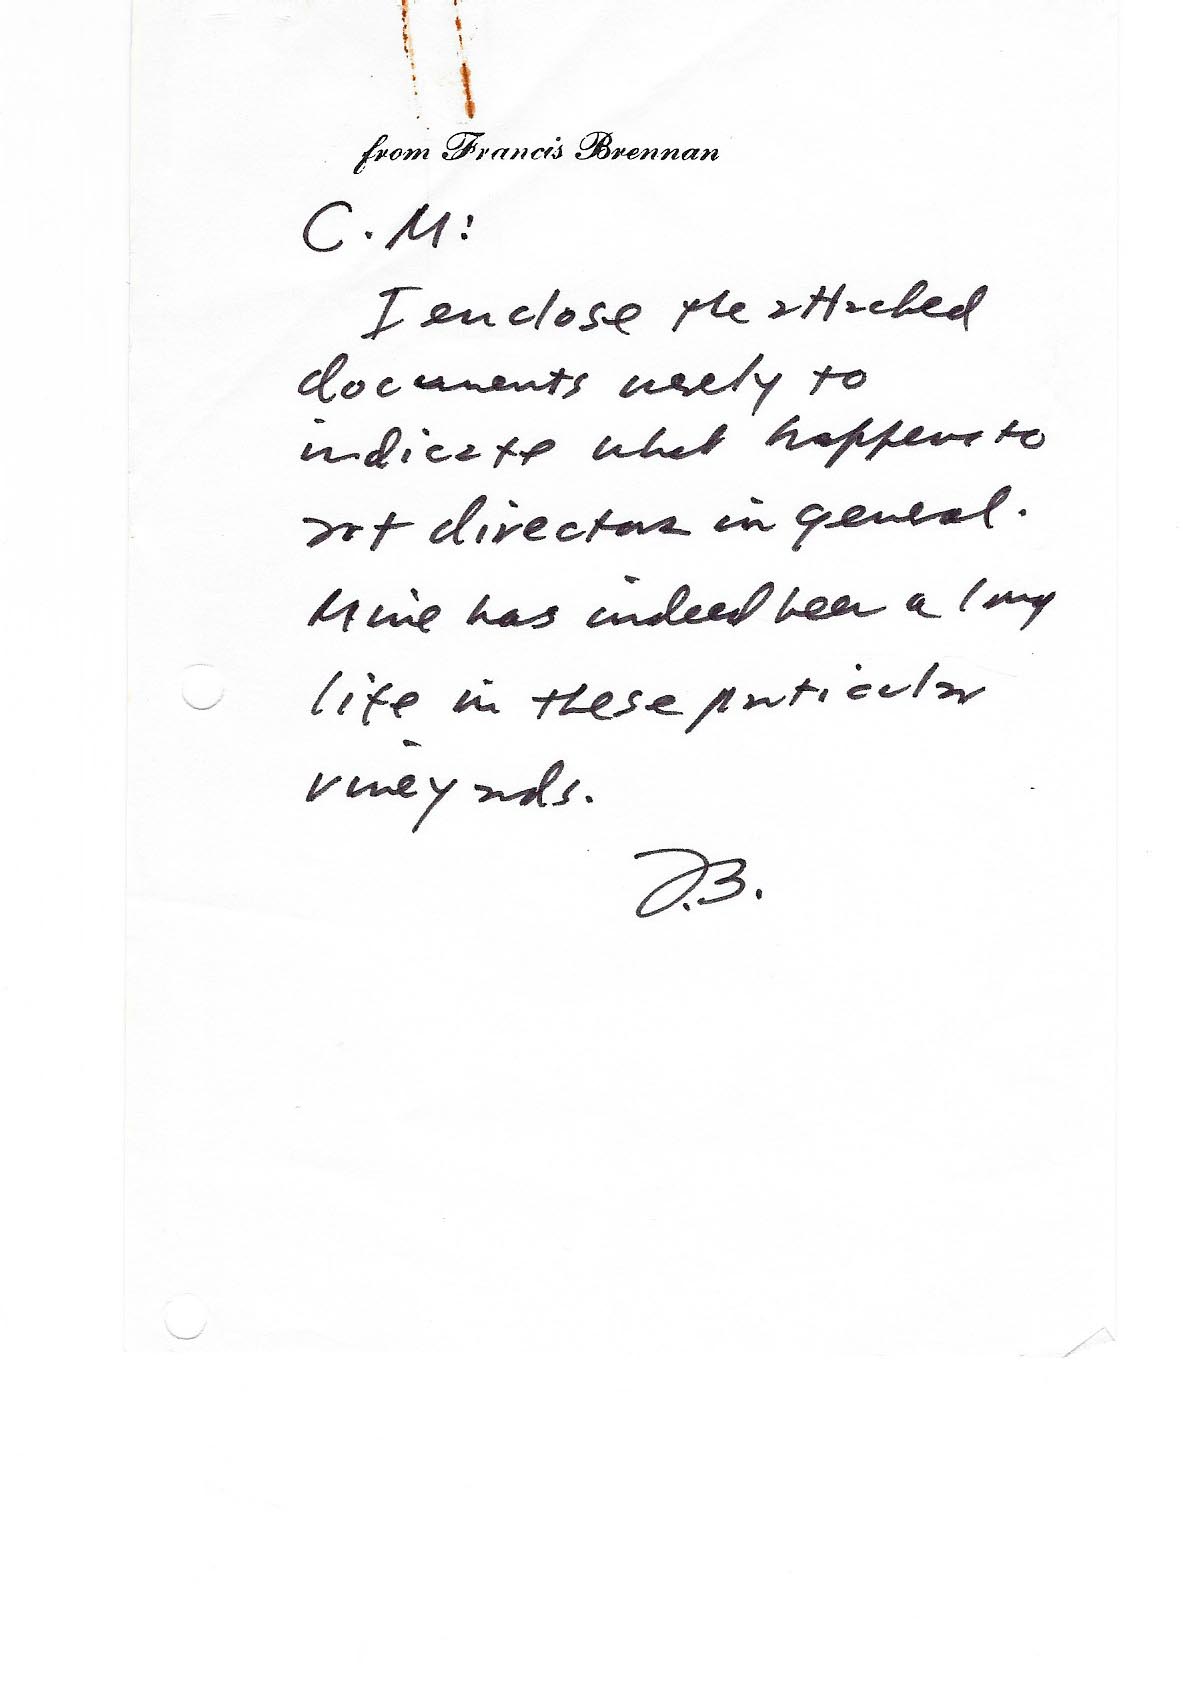 from Francis Brennan
C.M:
I enclose the attached
documents merely to
indicate what happens to
art directors in general.
Mine has indeed been a long
life in these particular
vineyards.
F.B.